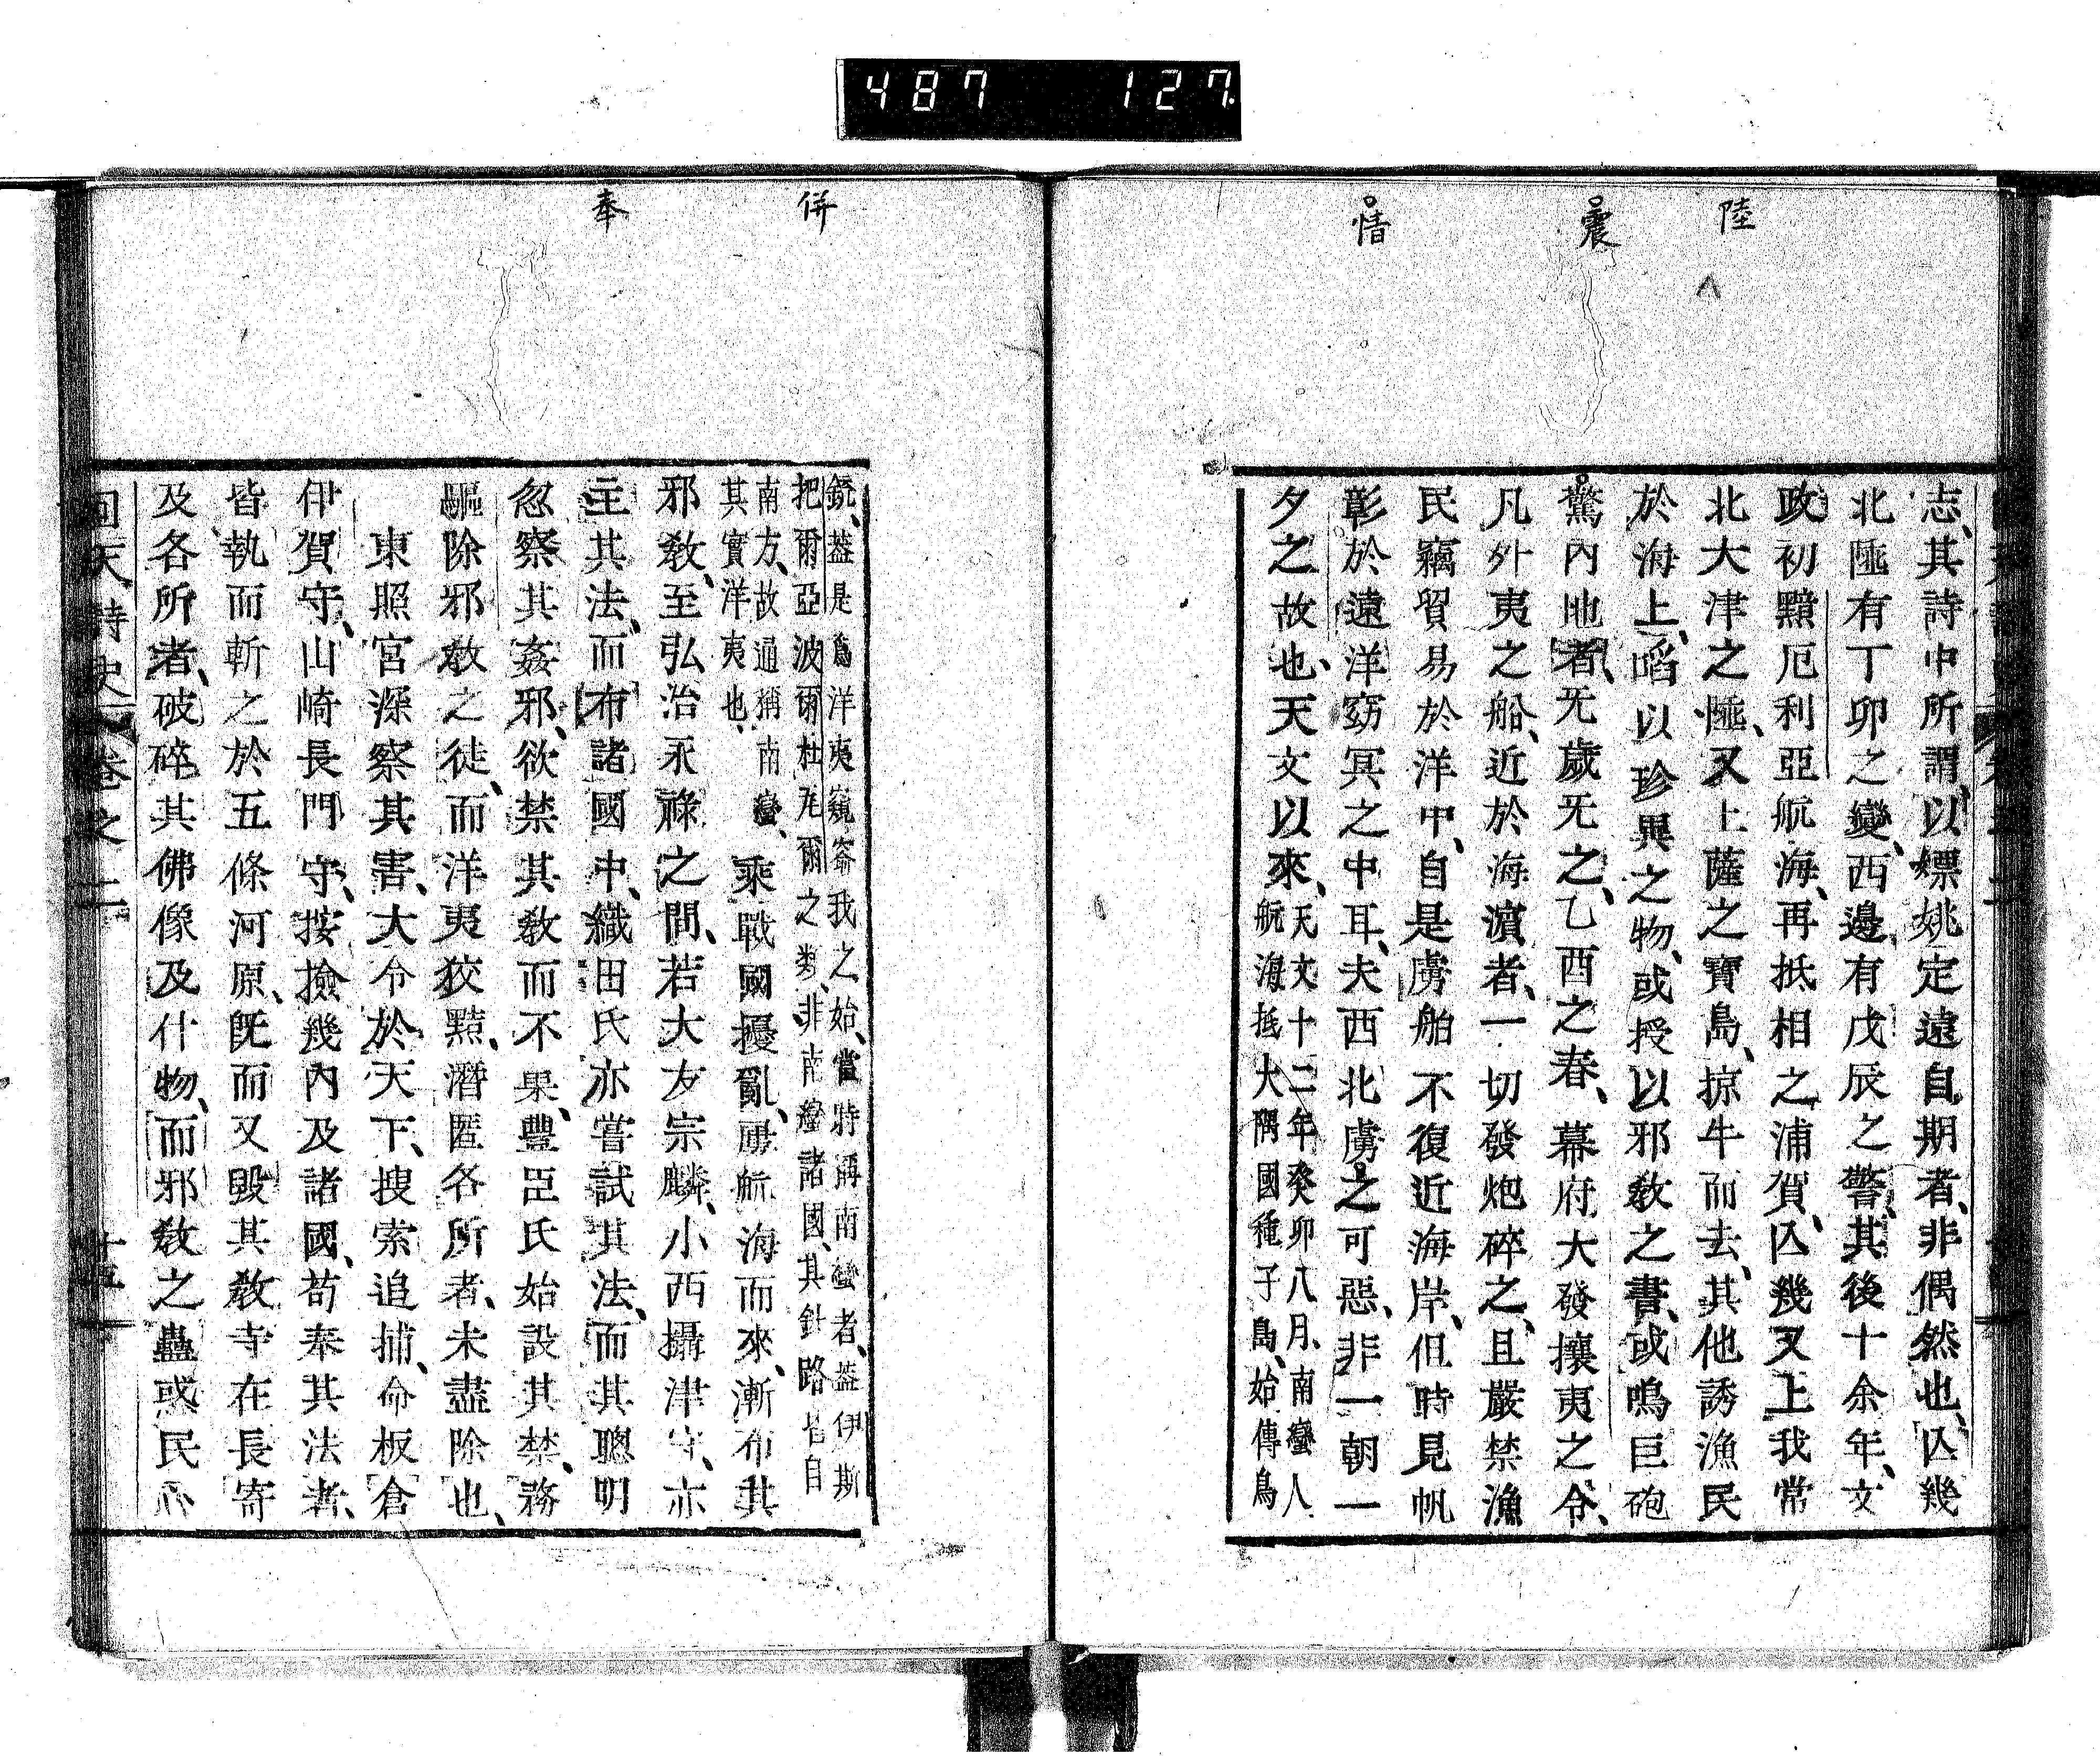 487 127
陸
震
惜
志、其詩中所謂、以嫖姚定遠自期者、非偶然也、亾幾
北陲有丁卯之變、西邊有戊辰之警、其後十余年、文
政初黯厄利亞航海、再抵相之浦賀、亾幾又上我常
北大津之陲、又上薩之寶島、掠牛而去、其他誘漁民
於海上、啗以珍異之物、或授以邪教之書、或鳴巨砲
驚內地者、旡歲旡之、乙酉之春、幕府大發攘夷之令、
凡外夷之船、近於海濵者、一切發炮碎之、且嚴禁漁
民竊貿易於洋中、自是虜舶不復近海岸、但時見帆
彰於遠洋窈冥之中耳、夫西北虜之可惡、非一朝一
夕之故也、天文以來、
天文十二年癸卯八月、南蠻人
航海抵大隅國種子島、始傳鳥
併
奉
銃、葢是爲洋夷窺窬我之始、當時稱南蠻者、葢伊斯
把爾亞波爾杜瓦爾之類、非南蠻諸國、其針路皆自
南方、故通稱南蠻、
其實洋夷也、
乘戰國擾亂、屢航海而來、漸布其
邪教、至弘治永祿之間、若大友宗麟、小西攝津守、亦
主其法、而布諸國中、織田氏亦嘗試其法、而其聰明
忽察其姦邪、欲禁其教而不果、豐臣氏始設其禁、務
驅除邪教之徒、而洋夷狡黠、潛匿各所者、未盡除也、
東照宮深察其害、大令於天下、搜索追捕、命板倉
伊賀守、山崎長門守、按撿幾內及諸國、苟奉其法者、
皆執而斬之於五條河原、既而又毀其教寺在長寄
及各所者、破碎其佛像及什物、而邪教之蠱惑民心
回天詩史 卷之二 十五